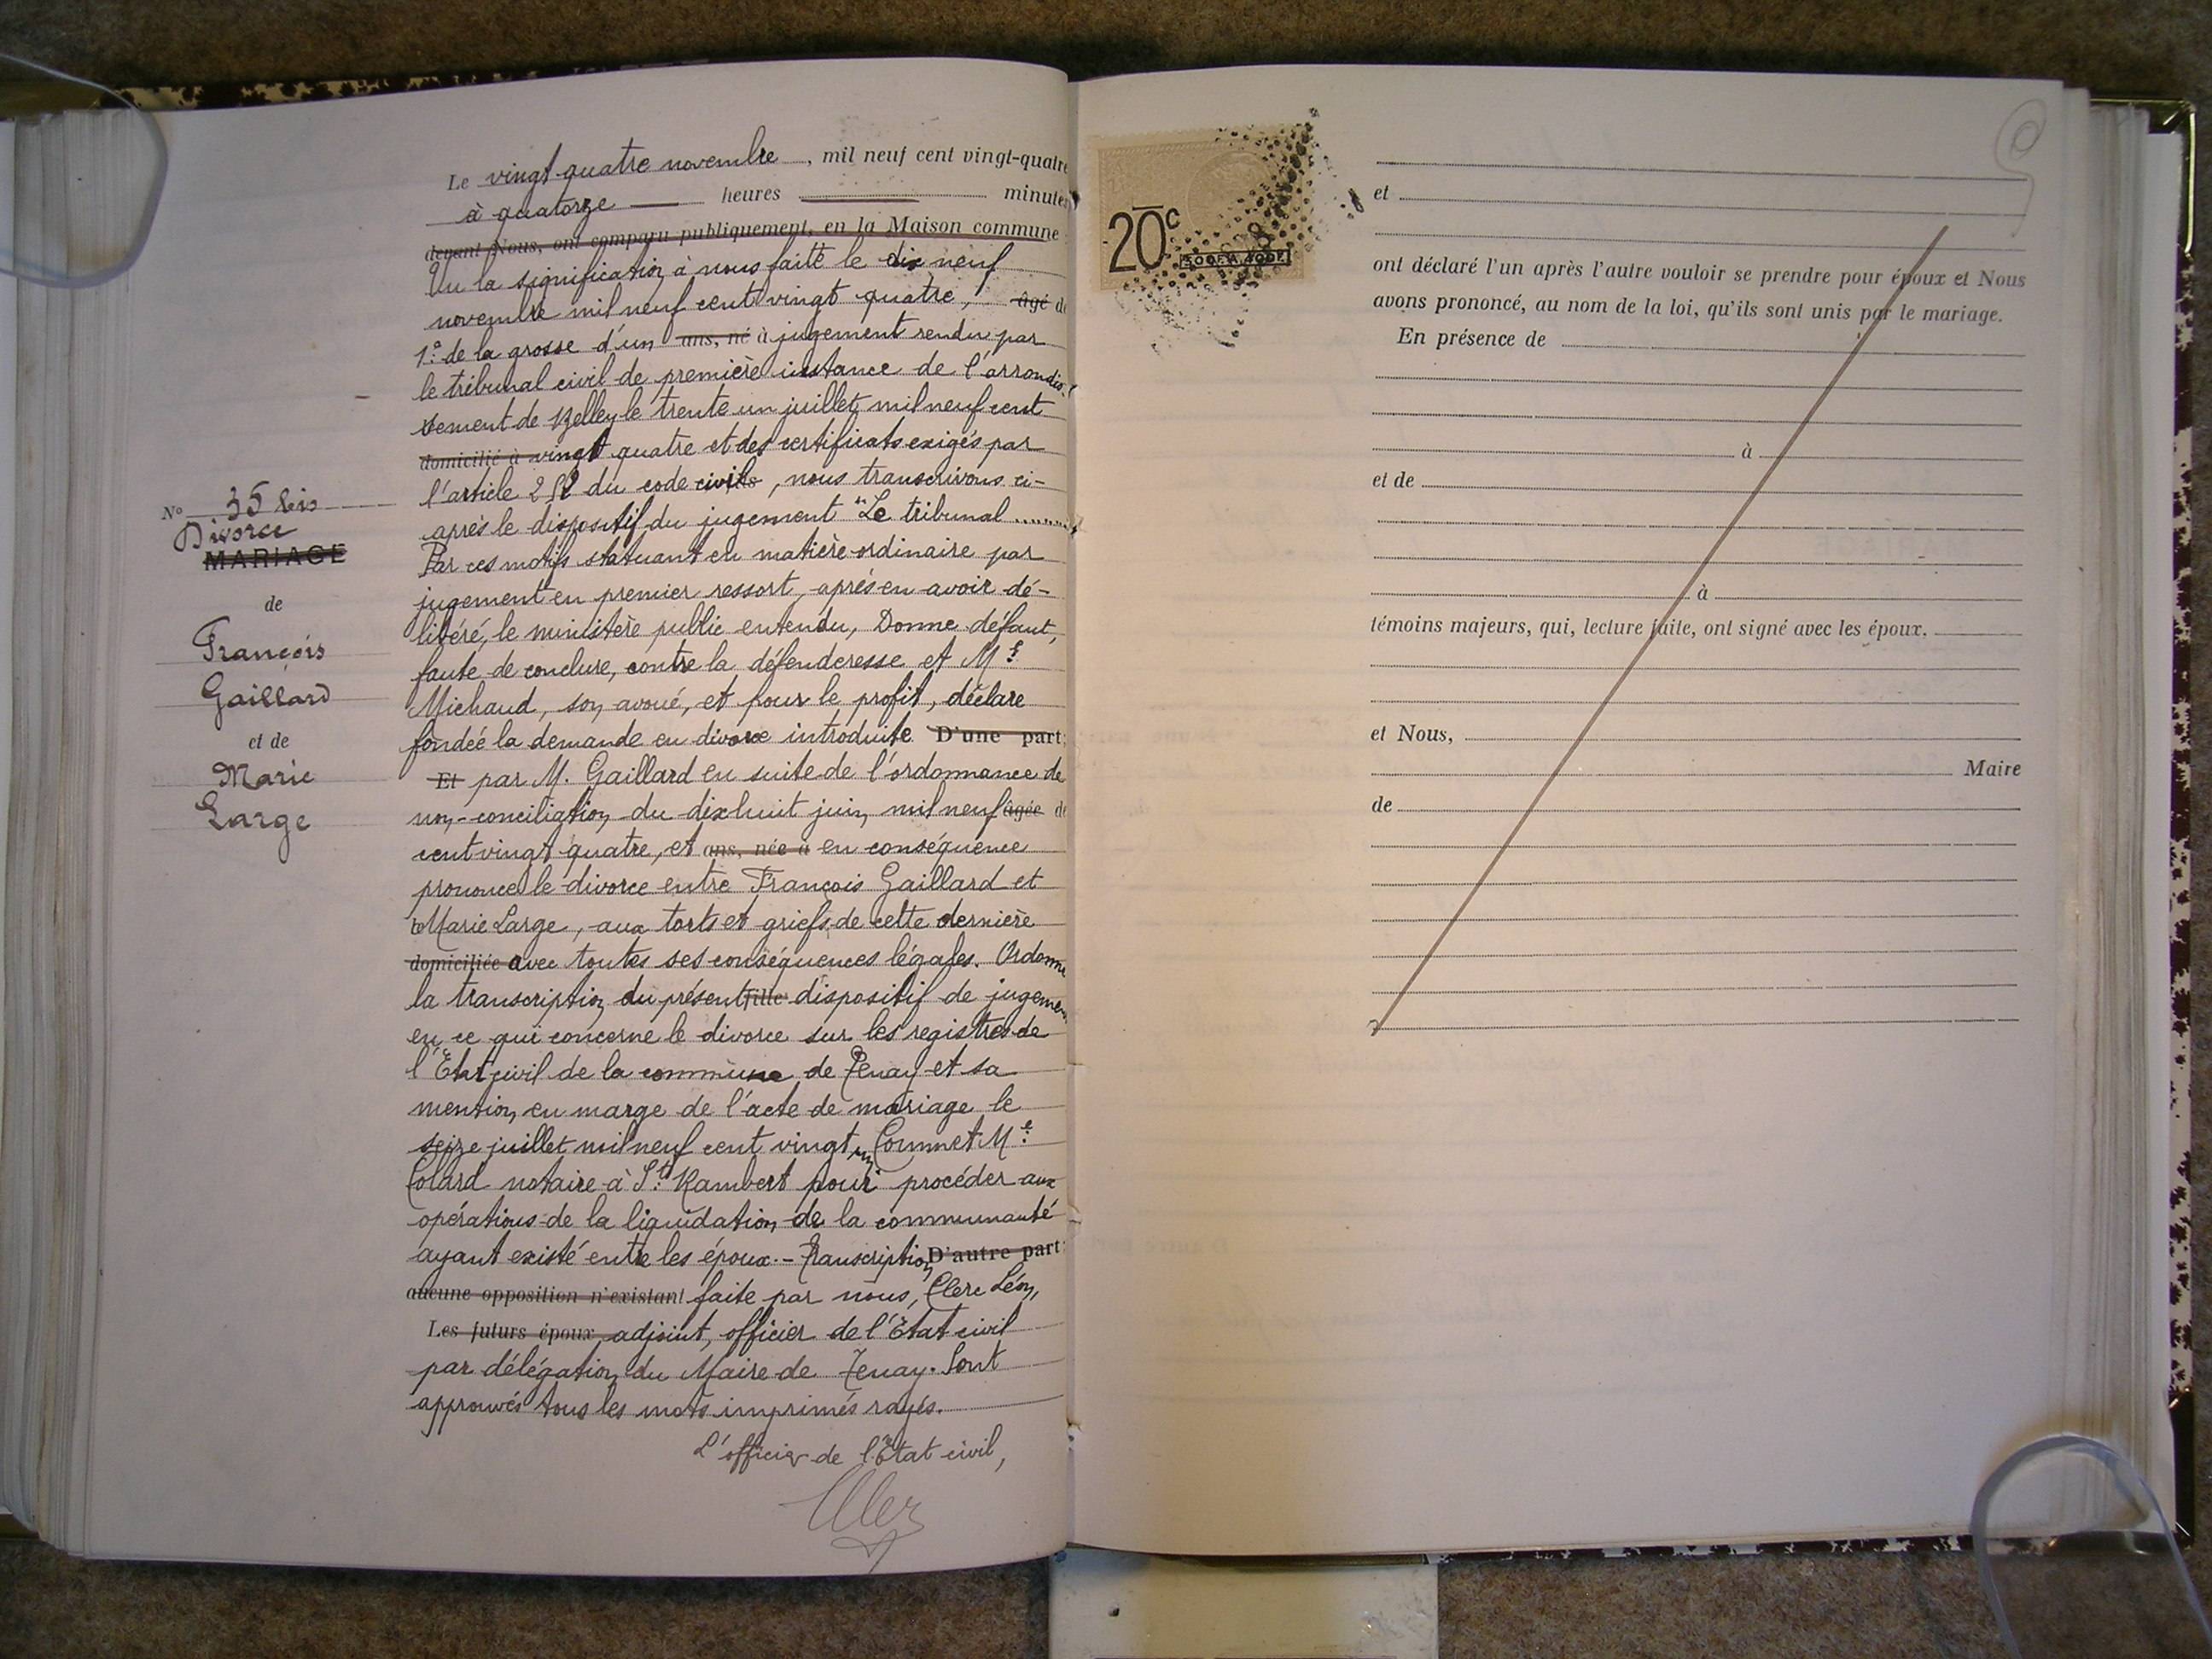 Le vingt quatre novembre, mil neuf cent vingt-quatre
à quatorze heures minutes
devant Nous, ont comparu publiquement, en la Maison commune
Vu la signification à nous faite le dix neuf
novembre mil neuf cent vingt quatre, âgé de
1º: de la grosse d'un ans, né à jugement rendu par
le tribunal civil de première instance de l'arrondis-
sement de Belley le trente un juillet mil neuf cent
domicilié à vingt quatre et des certificats exigés par
l'article 252 du code civil, nous transcrivons ci-
après le dispositif du jugement "Le tribunal ........
Par ces motifs statuant en matière ordinaire par
jugement en premier ressort, après en avoir dé-
libéré, le ministère public entendu, Donne défaut,
faute de conclure, contre la défenderesse et Me
Michaud, son avoué, et pour le profit, déclare
fondée la demande en divorce introduite D'une part;
Et par M. Gaillard en suite de l'ordonnance de
non-conciliation du dix huit juin mil neuf âgée de
cent vingt quatre, et ans, née à en conséquence
prononce le divorce entre François Gaillard et
Marie Large, aux torts et griefs de cette dernière
domiciliée avec toutes ses conséquences légales. Ordonne
la transcription du présent fille dispositif de jugement
en ce qui concerne le divorce sur les registres de
l'État civil de la commune de Tenay et sa
mention en marge de l'acte de mariage le
seize juillet mil neuf cent vingt un Commet Me
Colard notaire à St Rambert pour procéder aux
opérations de la liquidation de la communauté
ayant existé entre les époux. - Transcription D'autre part:
aucune opposition n'existant faite par nous, Clerc Léon,
Les futurs époux adjoint, officier de l'État civil
par délégation du Maire de Tenay. Sont
approuvés tous les mots imprimés rayés.
L'officier de l'État civil,
Nº 35 bis
Divorce
MARIAGE
de
François
Gaillard
et de
Marie
Large
20c
et
ont déclaré l'un après l'autre vouloir se prendre pour époux et Nous
avons prononcé, au nom de la loi, qu'ils sont unis par le mariage.
En présence de
à
et de
à
témoins majeurs, qui, lecture faite, ont signé avec les époux.
et Nous,
Maire
de